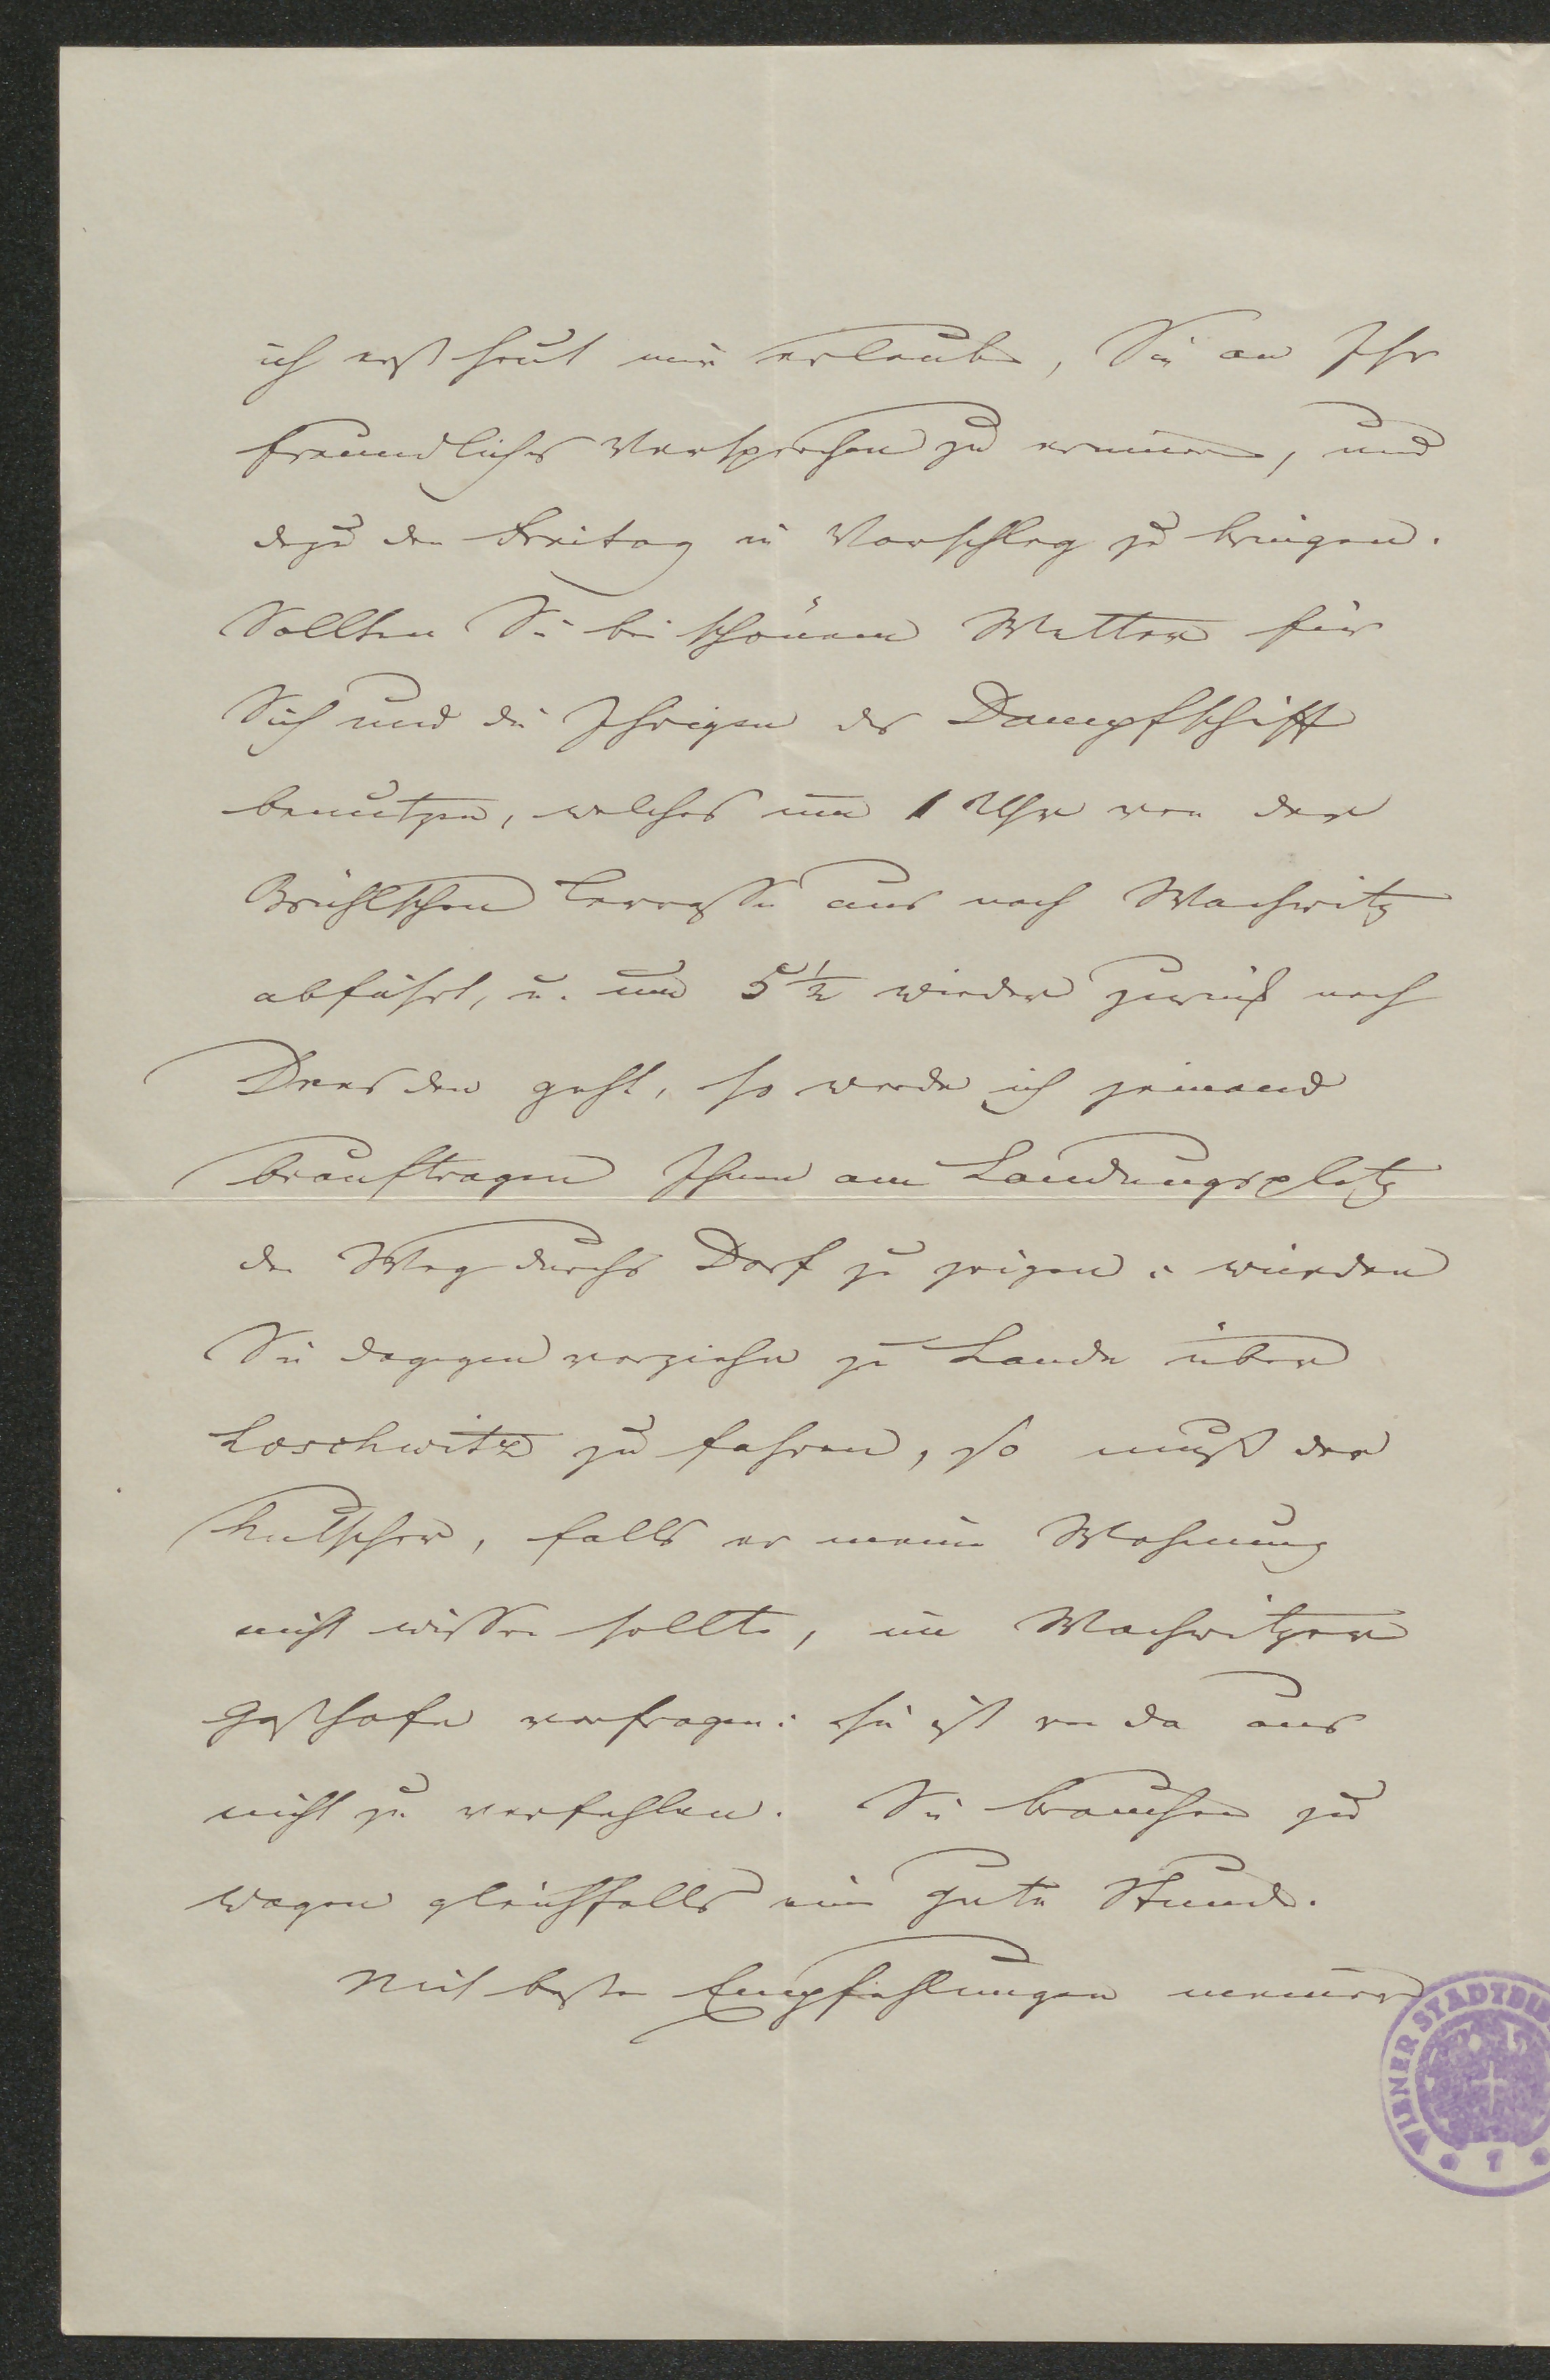 ich erst heut mir erlaube, Sie an Ihr
freundliches Versprechen zu erinnern, und
dazu den Freitag in Vorschlag zu bringen.
Sollten Sie bei schönem Wetter für
Sich und die Ihrigen das Dampfschiff
benutzen, welches um 1 Uhr von der
Brühlschen Terrasse aus nach Wachwitz
abfährt, u. um 5 1/2 wieder zurück nach
Dresden geht, so werde ich jemand
beauftragen Ihnen am Landungsplatz
den Weg durchs Dorf zu zeigen; würden
Sie dagegen vorziehn zu Lande über
Loschwitz zu fahren, so muß der
Kutscher, falls er meine Wohnung
nicht wissen sollte, im Wachwitzer
Gasthofe vorfragen: sie ist von da aus
nicht zu verfehlen. Sie brauchen zu
Wagen gleichfalls eine gute Stunde.
Mit besten Empfehlungen meiner
WIENER STADTBI